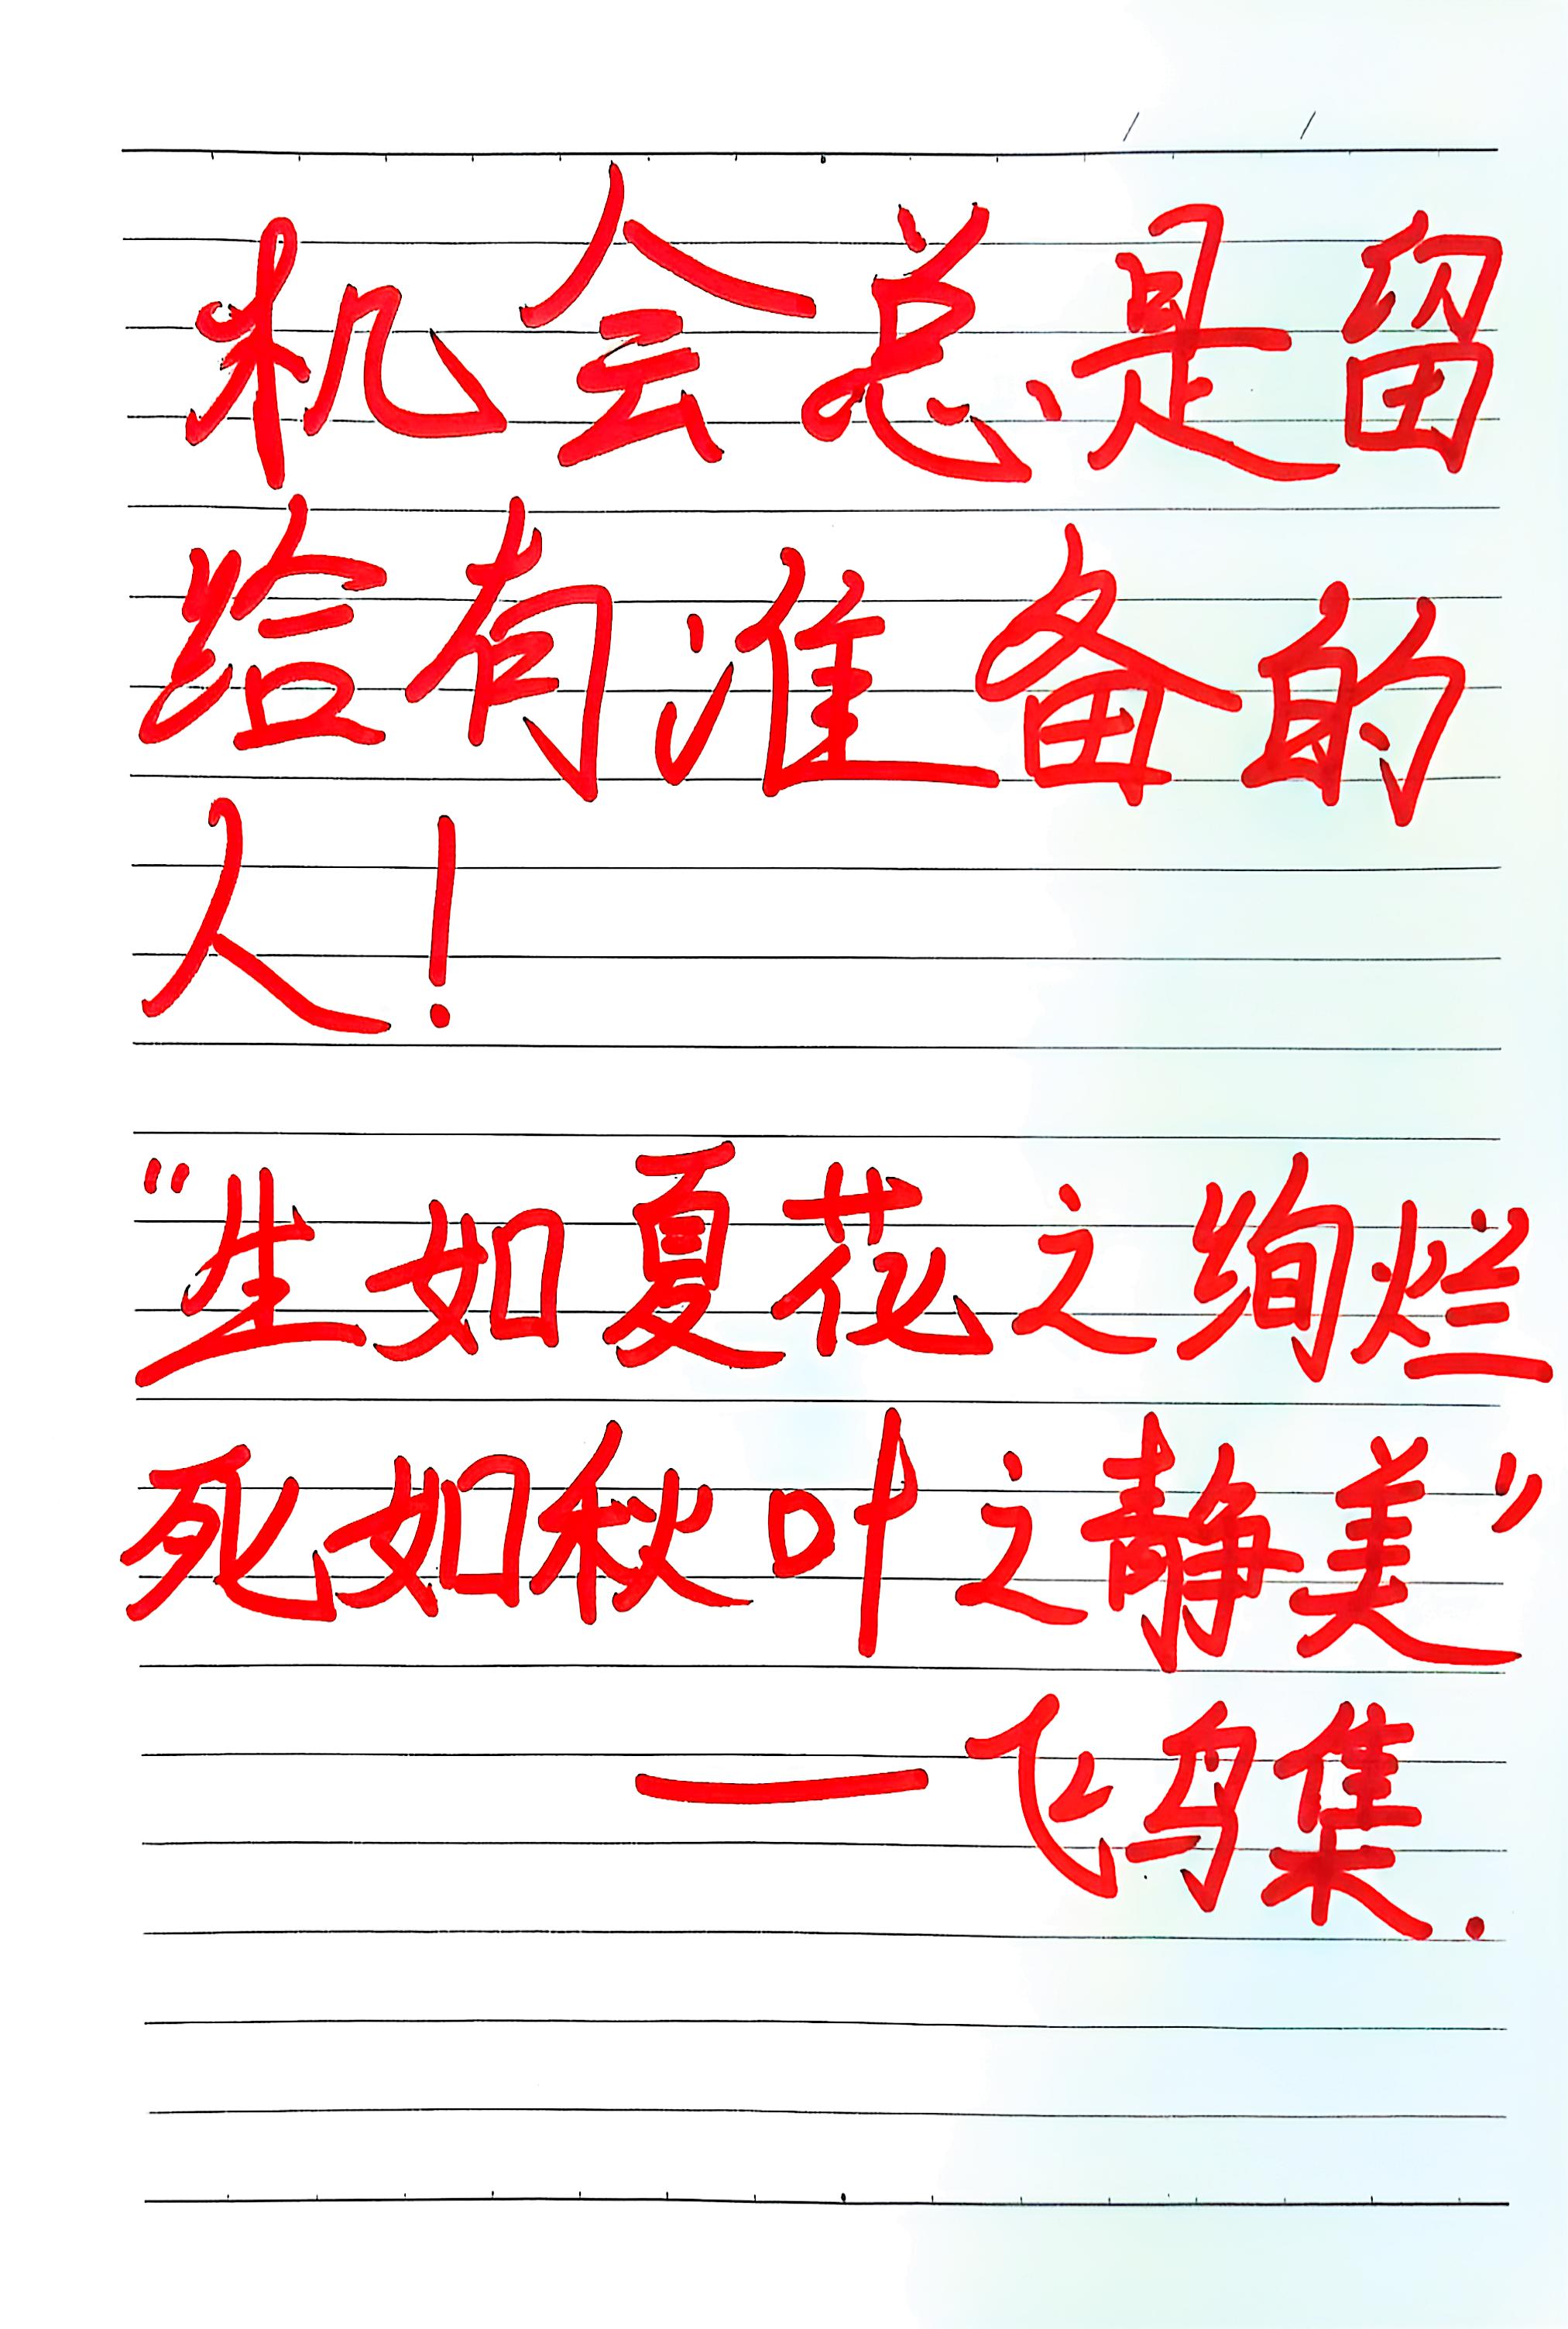 机会总是留
给有准备的
人！
“生如夏花之绚烂
死如秋叶之静美”
——飞鸟集.